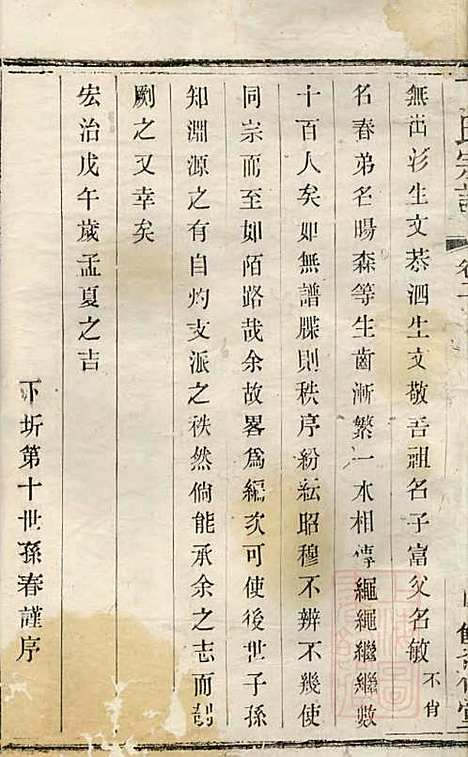 無出彡生文恭泗生文敬吾祖名子富父名敏不肖
名春弟名暘森等生齒漸繁一水相傳繩繩繼繼數
十百人矣如無譜牒則秩序紛紜昭穆不辨不幾使
同宗而至如陌路哉余故畧爲編次可使後世子孫
知淵源之有自灼支派之秩然倘能承余之志而
劂之又幸矣
宏治戊午歲孟夏之吉
下圻第十世孫春謹序